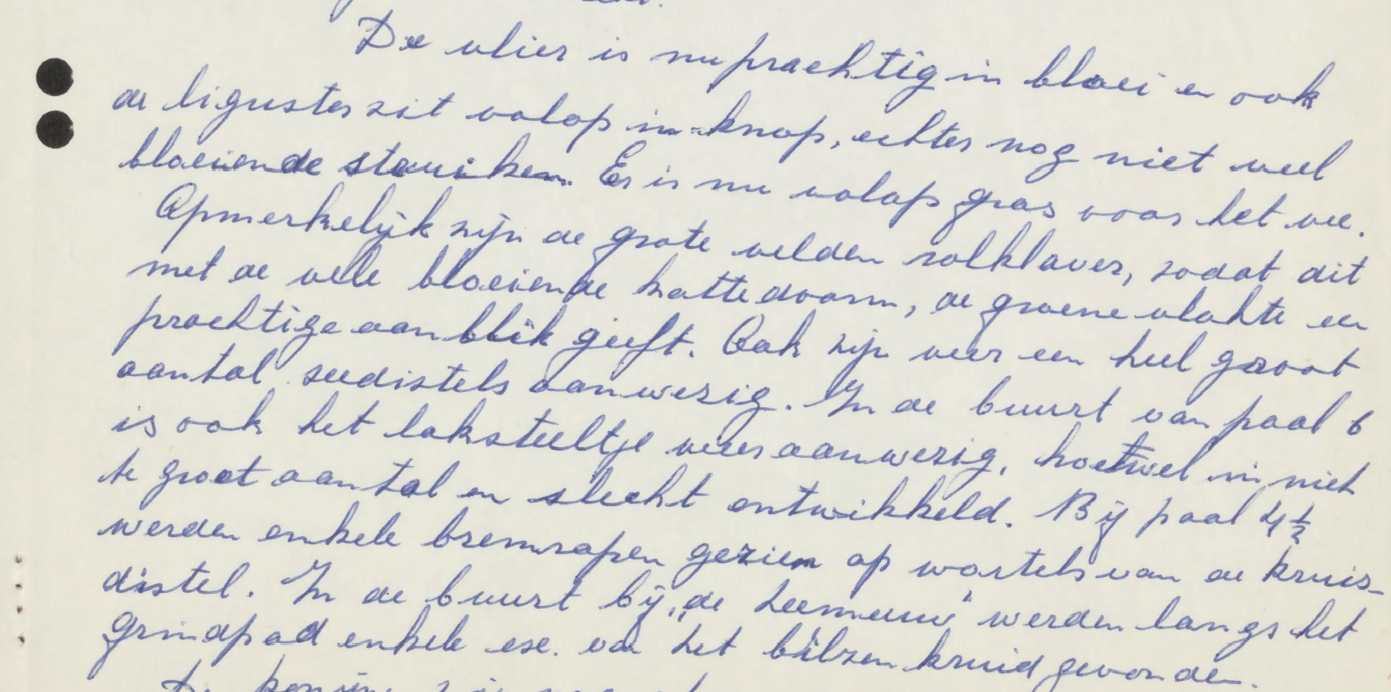 De vlier is nu prachtig in bloei en ook
de liguster zit volop in knop, echter nog niet veel
bloeiende struiken. Er is nu volop gras voor het vee.
Opmerkelijk zijn de grote velden rolklaver, zodat dit
met de vele bloeiende kattedoorn, de groene vlakte een
prachtige aanblik geeft. Ook zijn weer een heel groot
aantal zeedistels aanwezig. In de buurt van paal 6
is ook het laksteeltje weer aanwezig, hoewel in niet
te groot aantal en slecht ontwikkeld. Bij paal 4½
werden enkele bremrapen gezien op wortels van de kruis-
distel. In de buurt bij "de Zeemeeuw" werden langs het
grindpad enkele ex. van het bilzenkruid gevonden.